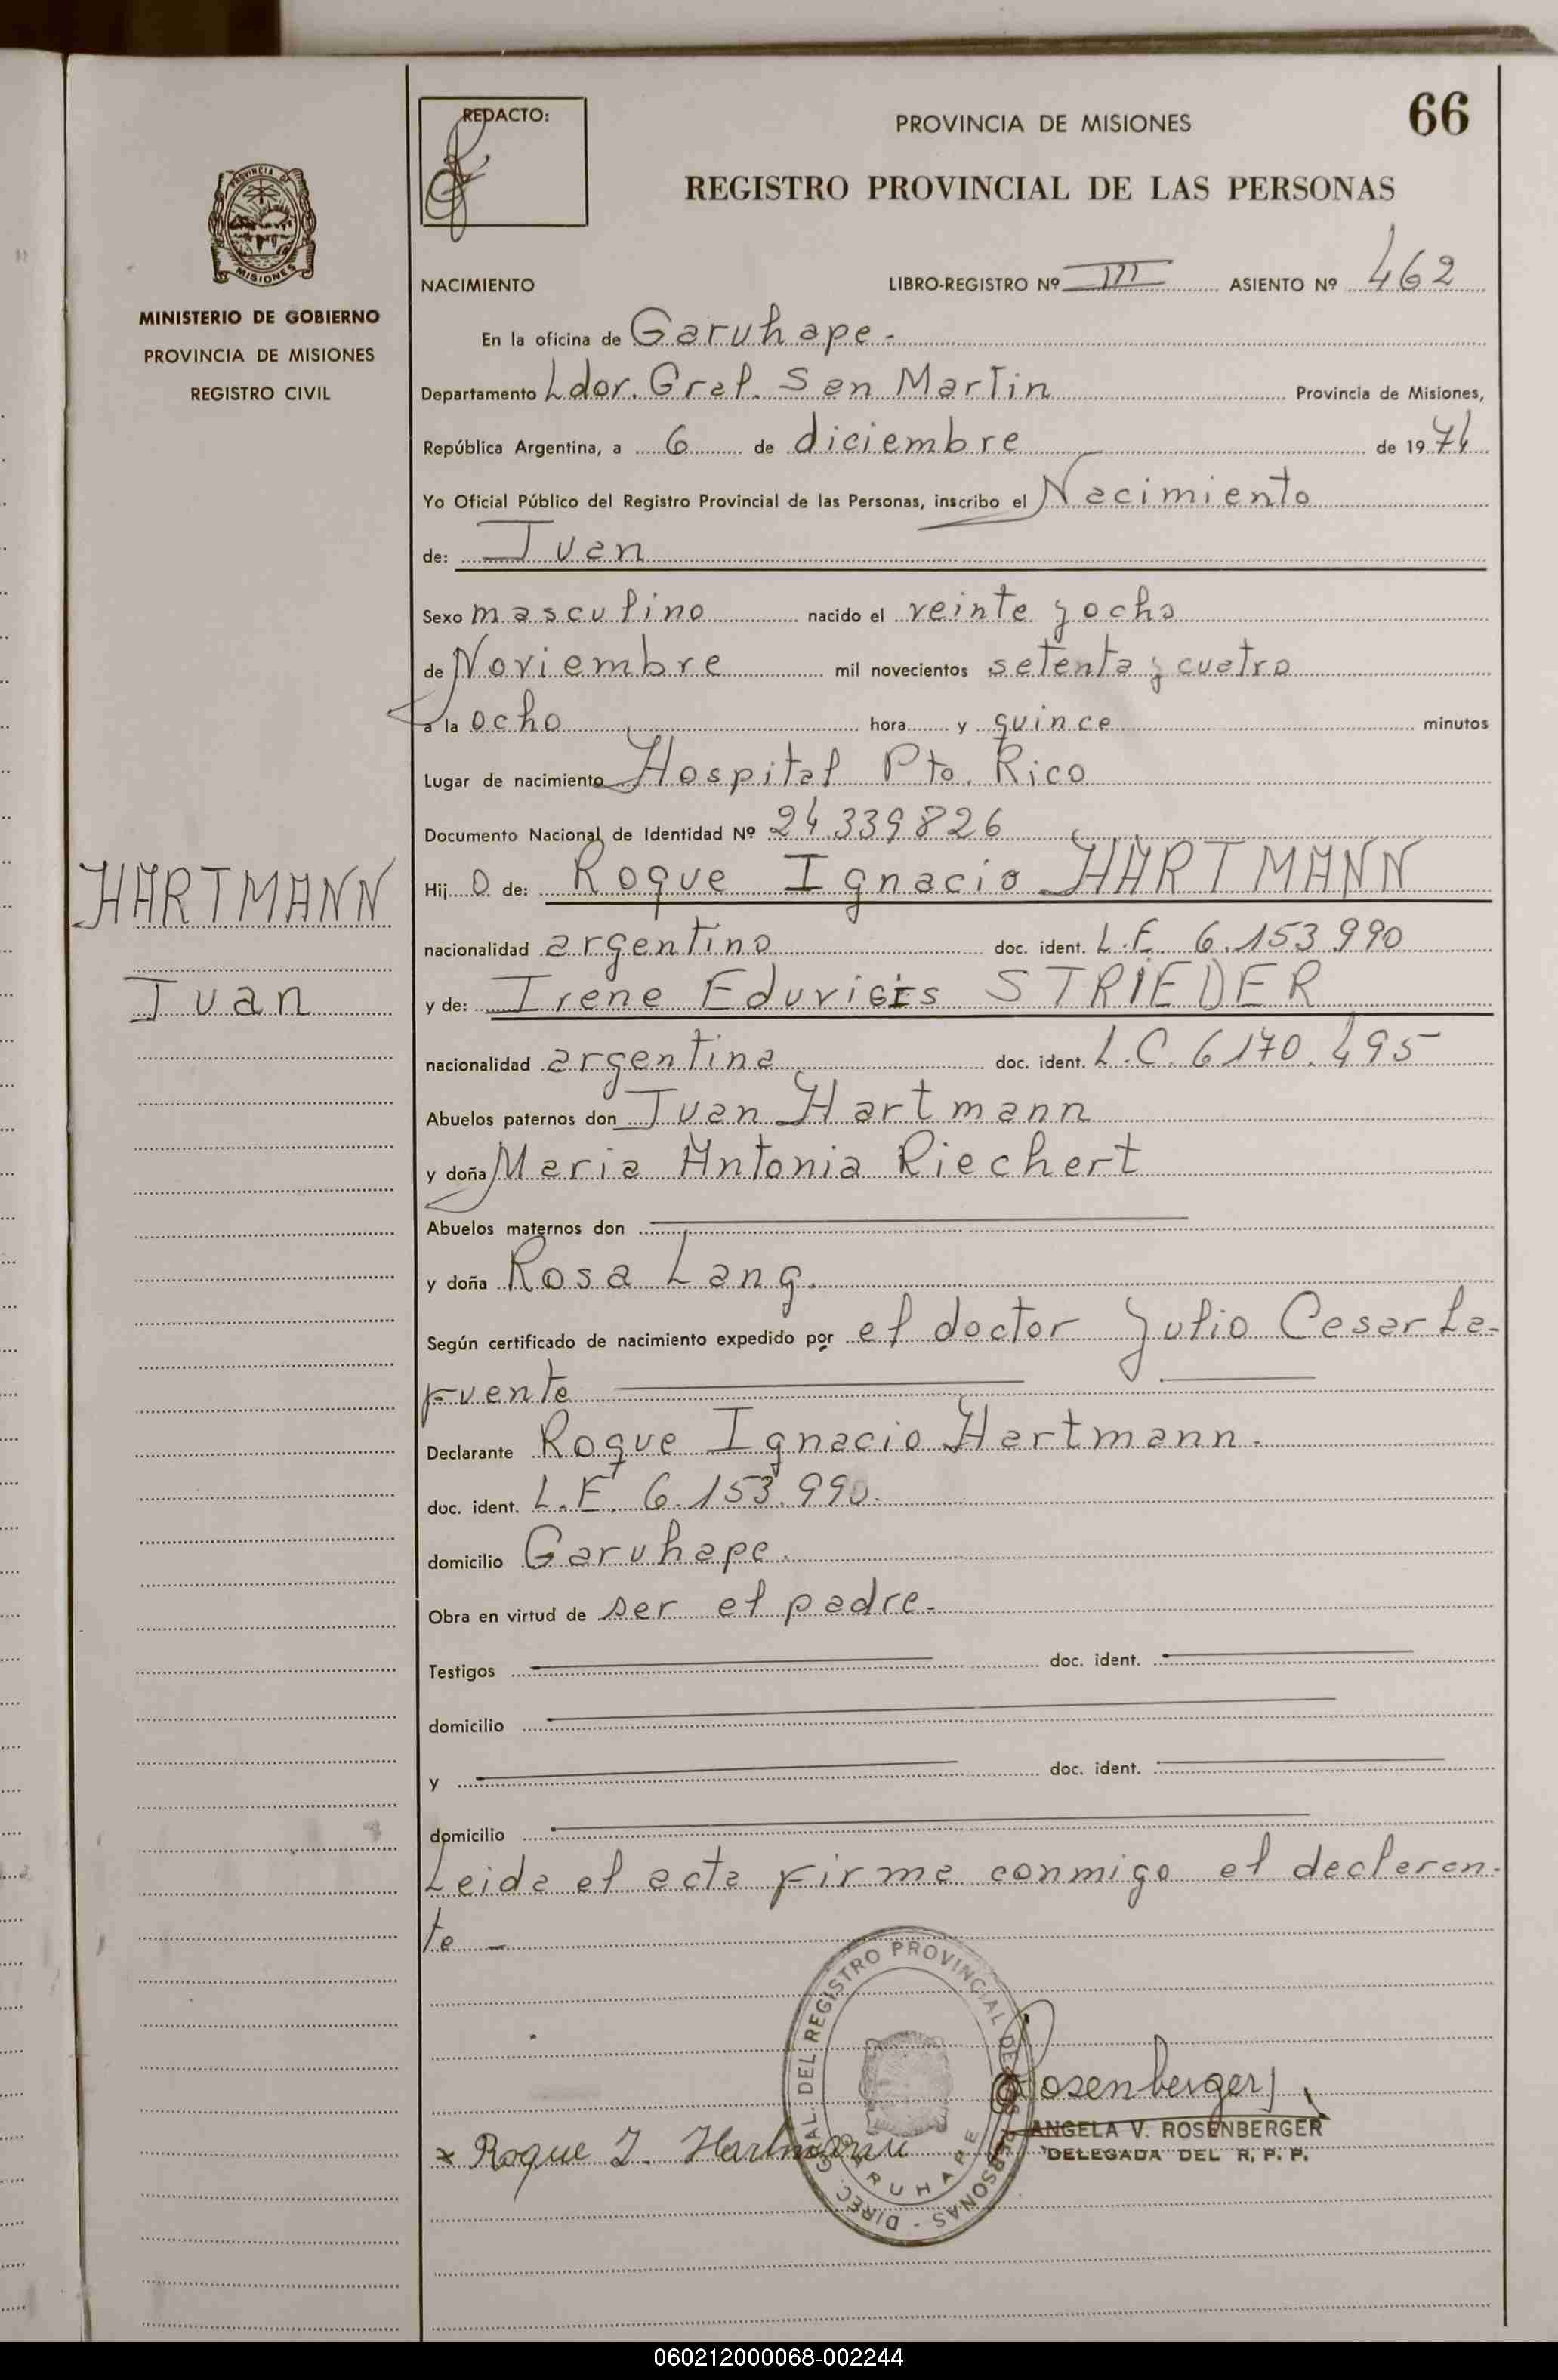 REDACTO:
PROVINCIA DE MISIONES
66
REGISTRO PROVINCIAL DE LAS PERSONAS
PROVINCIA DE
MISIONES
MINISTERIO DE GOBIERNO
PROVINCIA DE MISIONES
REGISTRO CIVIL
NACIMIENTO LIBRO-REGISTRO Nº III ASIENTO Nº 462
En la oficina de Garuhape -
Departamento Ldor. Gral. San Martin Provincia de Misiones,
República Argentina, a 6 de diciembre de 1974
Yo Oficial Público del Registro Provincial de las Personas, inscribo el Nacimiento
de: Juan
Sexo masculino nacido el veinte y ocho
de Noviembre mil novecientos setenta y cuatro
a la ocho hora y quince minutos
Lugar de nacimiento Hospital Pto. Rico
Documento Nacional de Identidad Nº 24.339826
Hij o de: Roque Ignacio HARTMANN
HARTMANN
nacionalidad argentino doc. ident. L.E. 6.153.990
Juan
y de: Irene Eduvigis STRIEDER
nacionalidad argentina doc. ident. L.C. 6170.495
Abuelos paternos don Juan Hartmann
y doña Maria Antonia Riechert
Abuelos maternos don
y doña Rosa Lang.
Según certificado de nacimiento expedido por el doctor Julio Cesar La-
fuente
Declarante Roque Ignacio Hartmann.
doc. ident. L.E. 6.153.990.
domicilio Garuhape.
Obra en virtud de ser el padre.
Testigos doc. ident.
domicilio
y doc. ident.
domicilio
Leida el acta firma conmigo el declaran-
te -
DIREC. GRAL. DEL REGISTRO PROVINCIAL DE LAS PERSONAS -
GARUHAPE
Rosenberger
ANGELA V. ROSENBERGER
DELEGADA DEL R. P. P.
x Roque I. Hartmann
060212000068-002244